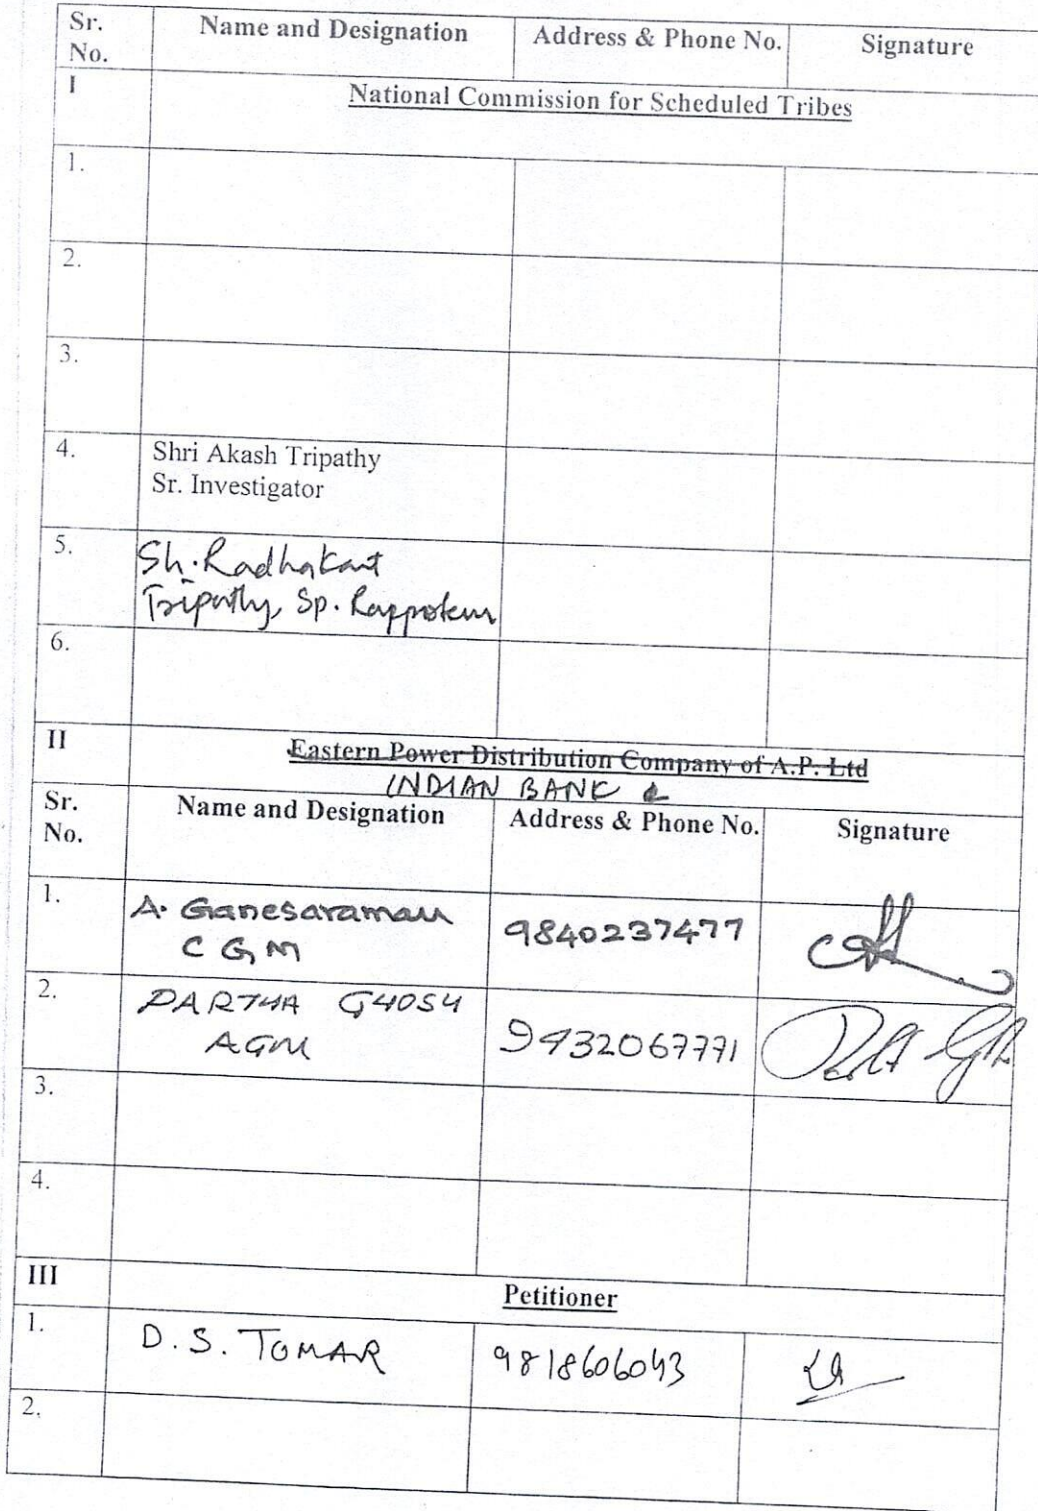 Sr. No. Name and Designation Address & Phone No. Signature
I National Commission for Scheduled Tribes
1.
2.
3.
4. Shri Akash Tripathy
Sr. Investigator
5. Sh. Radhakant
Tripathy, Sp. Rappoteur
6.
II Eastern Power Distribution Company of A.P. Ltd
INDIAN BANK
Sr. No. Name and Designation Address & Phone No. Signature
1. A. Ganesaraman 9840237477
C G M
2. PARTHA GHOSH 9432067771
AGM
3.
4.
III Petitioner
1. D. S. TOMAR 9818606043
2.